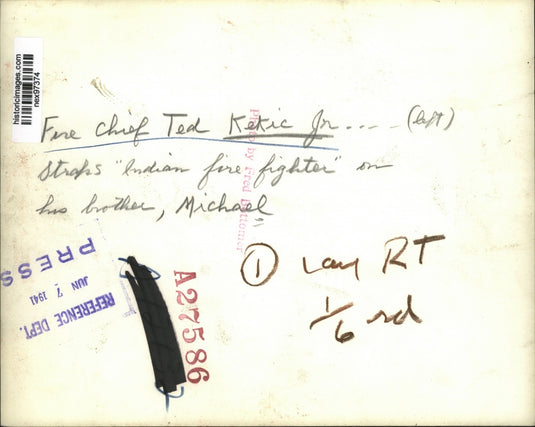 historicimages.com
nex97374
Fire Chief Ted Kekic Jr.... (left)
straps "Indian fire fighter" on
his brother, Michael
Photo by Fred Bottomer
① Lay RT
1/6 rd
A27586
PRESS
JUN 7 1941
REFERENCE DEPT.